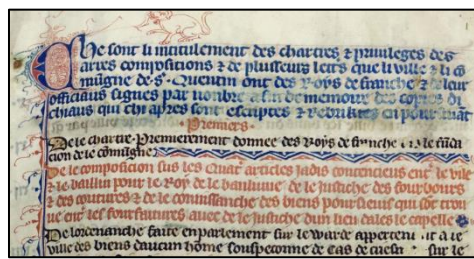 Che sont li intitulement des chartres ⁊ priuileges des
autres compositions ⁊ de plusseurs lettres que li ville ⁊ li cō
mūgne de .S. Quentin ont des Roys de franche ⁊ de leur
officiaus signes par nombre afin de memoire des copies
chiaus qui chi apres sont escriptes ⁊
Premiers
De le chartre Premierement donnee des Roys de franche
cion de le cōmūgne
De le composition sus les Quatre articles iadis contencieus entre le vile
⁊ le baillin pour le Roy de le banlieue de le iustiche des fourbours
⁊ des coutures ⁊ de le connissanche des biens pour sieus qui sōt trou
ue ent les fourfaitures auec de le iustiche dun lieu dales le capelle
De lordenanche faite en parlement sur le warde
ville des biens daucun hōme souspeconne de cas de sur le